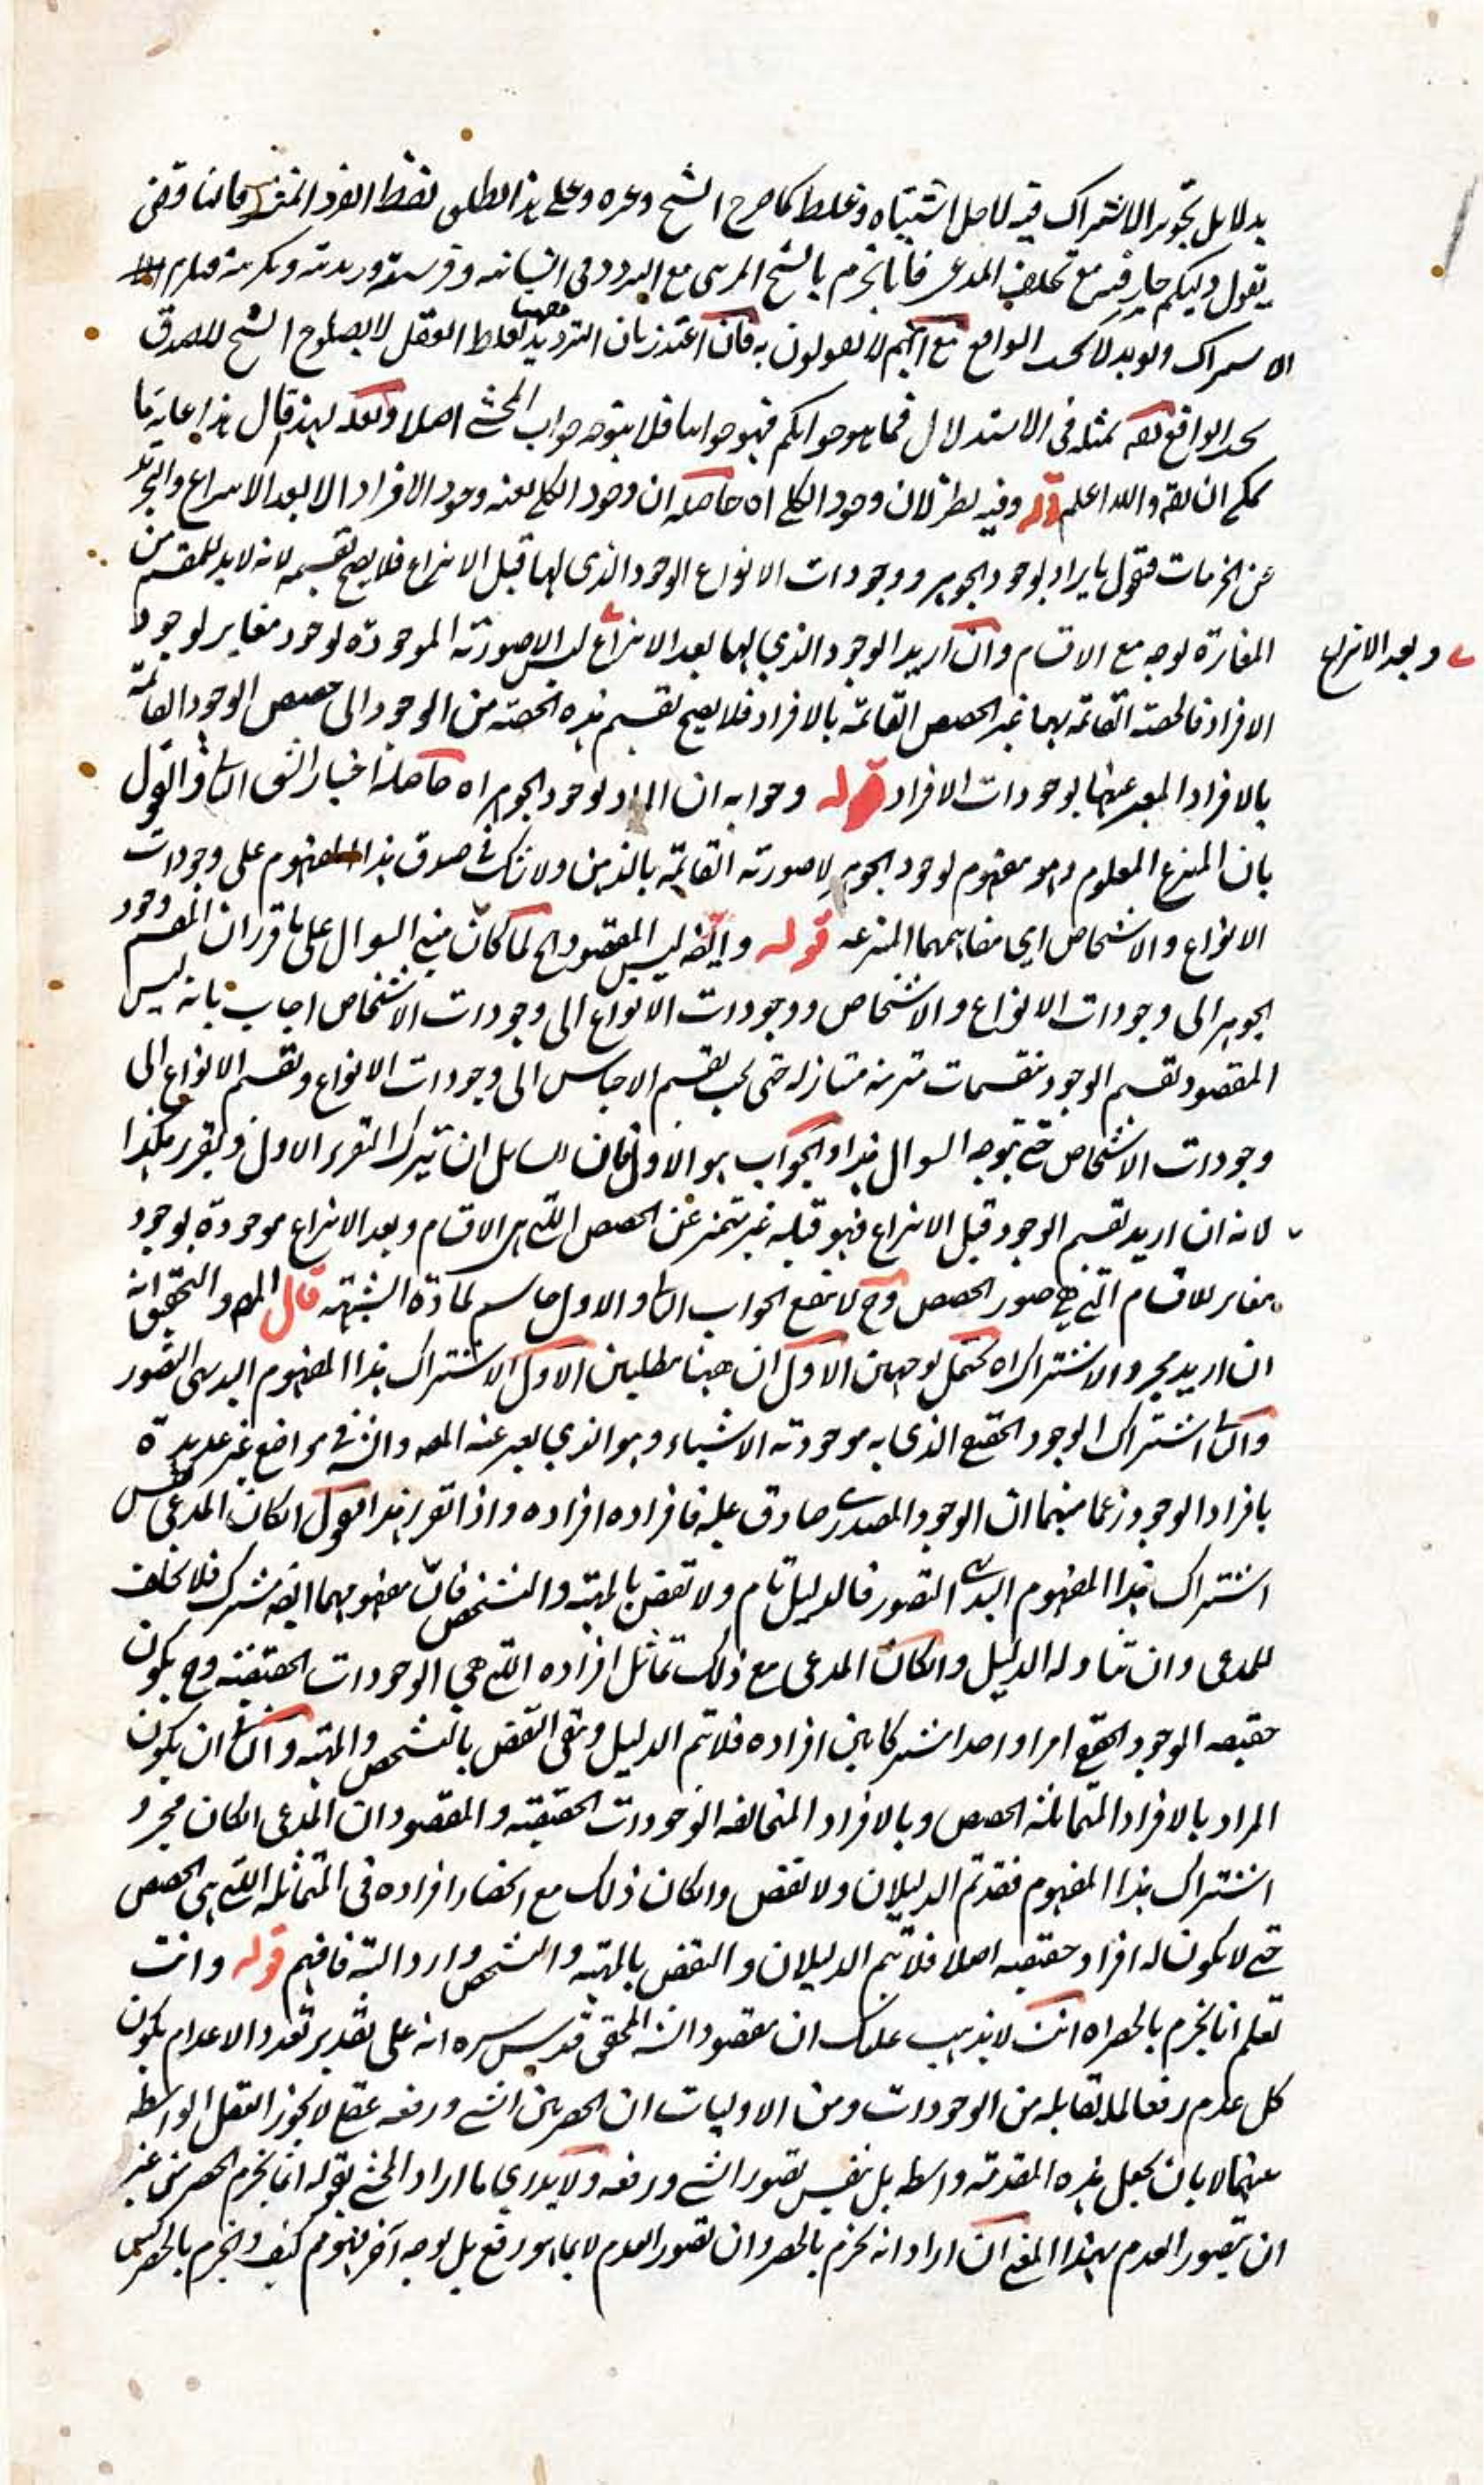 بدلا بل تجويز الاشتراك فيه لاجل اشتباه وغلط كما صرح الشيخ وغيره وعلى هذا لفظ الفرد
يقول دليلكم جار فيه مع تخلف المدعى فانا نجزم بالشبح المرئي مع التردد في انسانيته وفرسيته
الاشتراك ولو بدلا بحسب الواقع مع انهم لا يقولون به فان اعتذر بان الترديد ههنا لغلط العقل لا يصلوح الشبح للصدق
بحسب الواقع نقول بمثله في الاستدلال فما هو جوابكم فهو جوابنا فلا يتوجه جواب المحشي اصلا ولعله لهذا قال هذا غاية ما
يمكن ان يقال والله اعلم قوله وفيه نظر لان وجود الكلي اه حاصله ان وجود الكلي بعينه وجود الافراد الا بعد الانتزاع والتجريد
عن الجزئيات فنقول ما يراد بوجود الجوهر ووجودات الانواع الوجود الذي لها قبل الانتزاع فلا يصح تقسيمه لانه لا بد للمقسم من
المغايرة بوجه مع الاقسام وان اريد الوجود الذي لها بعد الانتزاع ليس الا صورته الموجودة بوجود مغاير لوجود
وبعد الانتزاع
الافراد فالحصة القائمة بها غير الحصص القائمة بالافراد فلا يصح تقسيم هذه الحصة من الوجود الى حصص الوجود القائمة
بالافراد المعبر عنها بوجودات الافراد قوله وجوابه ان المراد بوجود الجوهر اه حاصله اختيار الشق الثاني والقول
بان المنتزع المعلوم وهو مفهوم لوجود الجوهر لا صورته القائمة بالذهن ولا شك في صدق هذا المفهوم على وجودات
الانواع والاشخاص اي مفاهيمها المنتزعة قوله وايضا ليس المقصود اه لما كان مبنى السوال على ما قرر ان المقسم وجود
الجوهر الى وجودات الانواع والاشخاص ووجودات الانواع الى وجودات الاشخاص اجاب بانه ليس
المقصود تقسيم الوجود بتقسيمات مترتبة متنازلة حتى يجب تقسيم الاجناس الى وجودات الانواع وتقسيم الانواع الى
وجودات الاشخاص حتى يتوجه السوال هذا والجواب هو الاول فان للسائل ان يترك التقرير الاول ويقرر هكذا
لانه ان اريد تقسيم الوجود قبل الانتزاع فهو قبله غير متميز عن الحصص التي هي الاقسام وبعد الانتزاع موجودة بوجود
مغاير للاقسام التي هي صور الحصص وح لا ينفع الجواب الثاني والاول حاسم لمادة الشبهة قال المص والتحقيق انه
ان اريد مجرد الاشتراك اه يحتمل توجيهين الاول ان ههنا مطلبين الاول الاشتراك هذا المفهوم البديهي التصور
والثاني اشتراك الوجود الحقيقي الذي به موجودته الاشياء وهو الذي يعبر عنه المص والش في مواضع غير عديدة
بافراد الوجود زعما منهما ان الوجود المصدري صادق عليه فافراده افراده واذا تقرر هذا فنقول ان كان المدعى ليس
اشتراك هذا المفهوم البديهي التصور فالدليل تام ولا نقض بالمهية والتشخص فان مفهومهما ايضا مشترك فلا تخلف
للمدعى وان تناوله الدليل وان كان المدعى مع ذلك تماثل افراده التي هي الوجودات الحقيقية وح يكون
حقيقة الوجود الحقيقي امرا واحدا مشتركا بين افراده فلا يتم الدليل وبقي النقض بالتشخص والمهية والثاني ان يكون
المراد بالافراد المتماثلة الحصص وبالافراد المتخالفة الوجودات الحقيقية والمقصود ان المدعى ان كان مجرد
اشتراك هذا المفهوم فقد تم الدليلان ولا نقض وان كان ذلك مع انحصار افراده في المتماثلة التي هي الحصص
حتى لا يكون له افراد حقيقية اصلا فلا يتم الدليلان والنقض بالمهية والتشخص وارد البتة فافهم قوله وانت
تعلم انا نجزم بالحصر اه انت لا يذهب عليك ان مقصود الش المحقق قدس سره انه على تقدير تعدد الاعدام يكون
كل عدم رفعا لما يقابله من الوجودات ومن الاوليات ان الحصر بين الشي ورفعه عقلي لا يجوز العقل الواسطة
بينهما لا بان يجعل هذه المقدمة واسطة بل بنفس تصور الشي ورفعه ولا يدري ما اراد المحشي بقوله انا نجزم الحصر من غير
ان يتصور العدم بهذا المعنى ان اراد انه نجزم بالحصر وان تصور العدم لا بما هو رفع بل بوجه آخر فهو مم كيف والجزم بالحصر ليس